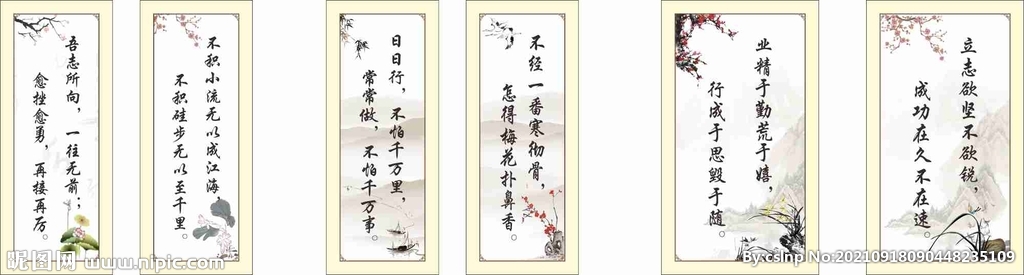 吾志所向，一往无前；
愈挫愈勇，再接再厉。
不积小流无以成江海，
不积硅步无以至千里。
日日行，不怕千万里，
常常做，不怕千万事。
不经一番寒彻骨，
怎得梅花扑鼻香。
业精于勤荒于嬉，
行成于思毁于随。
立志欲坚不欲锐，
成功在久不在速。
昵图网 www.nipic.com
By:cslnp No:20210918090448235109